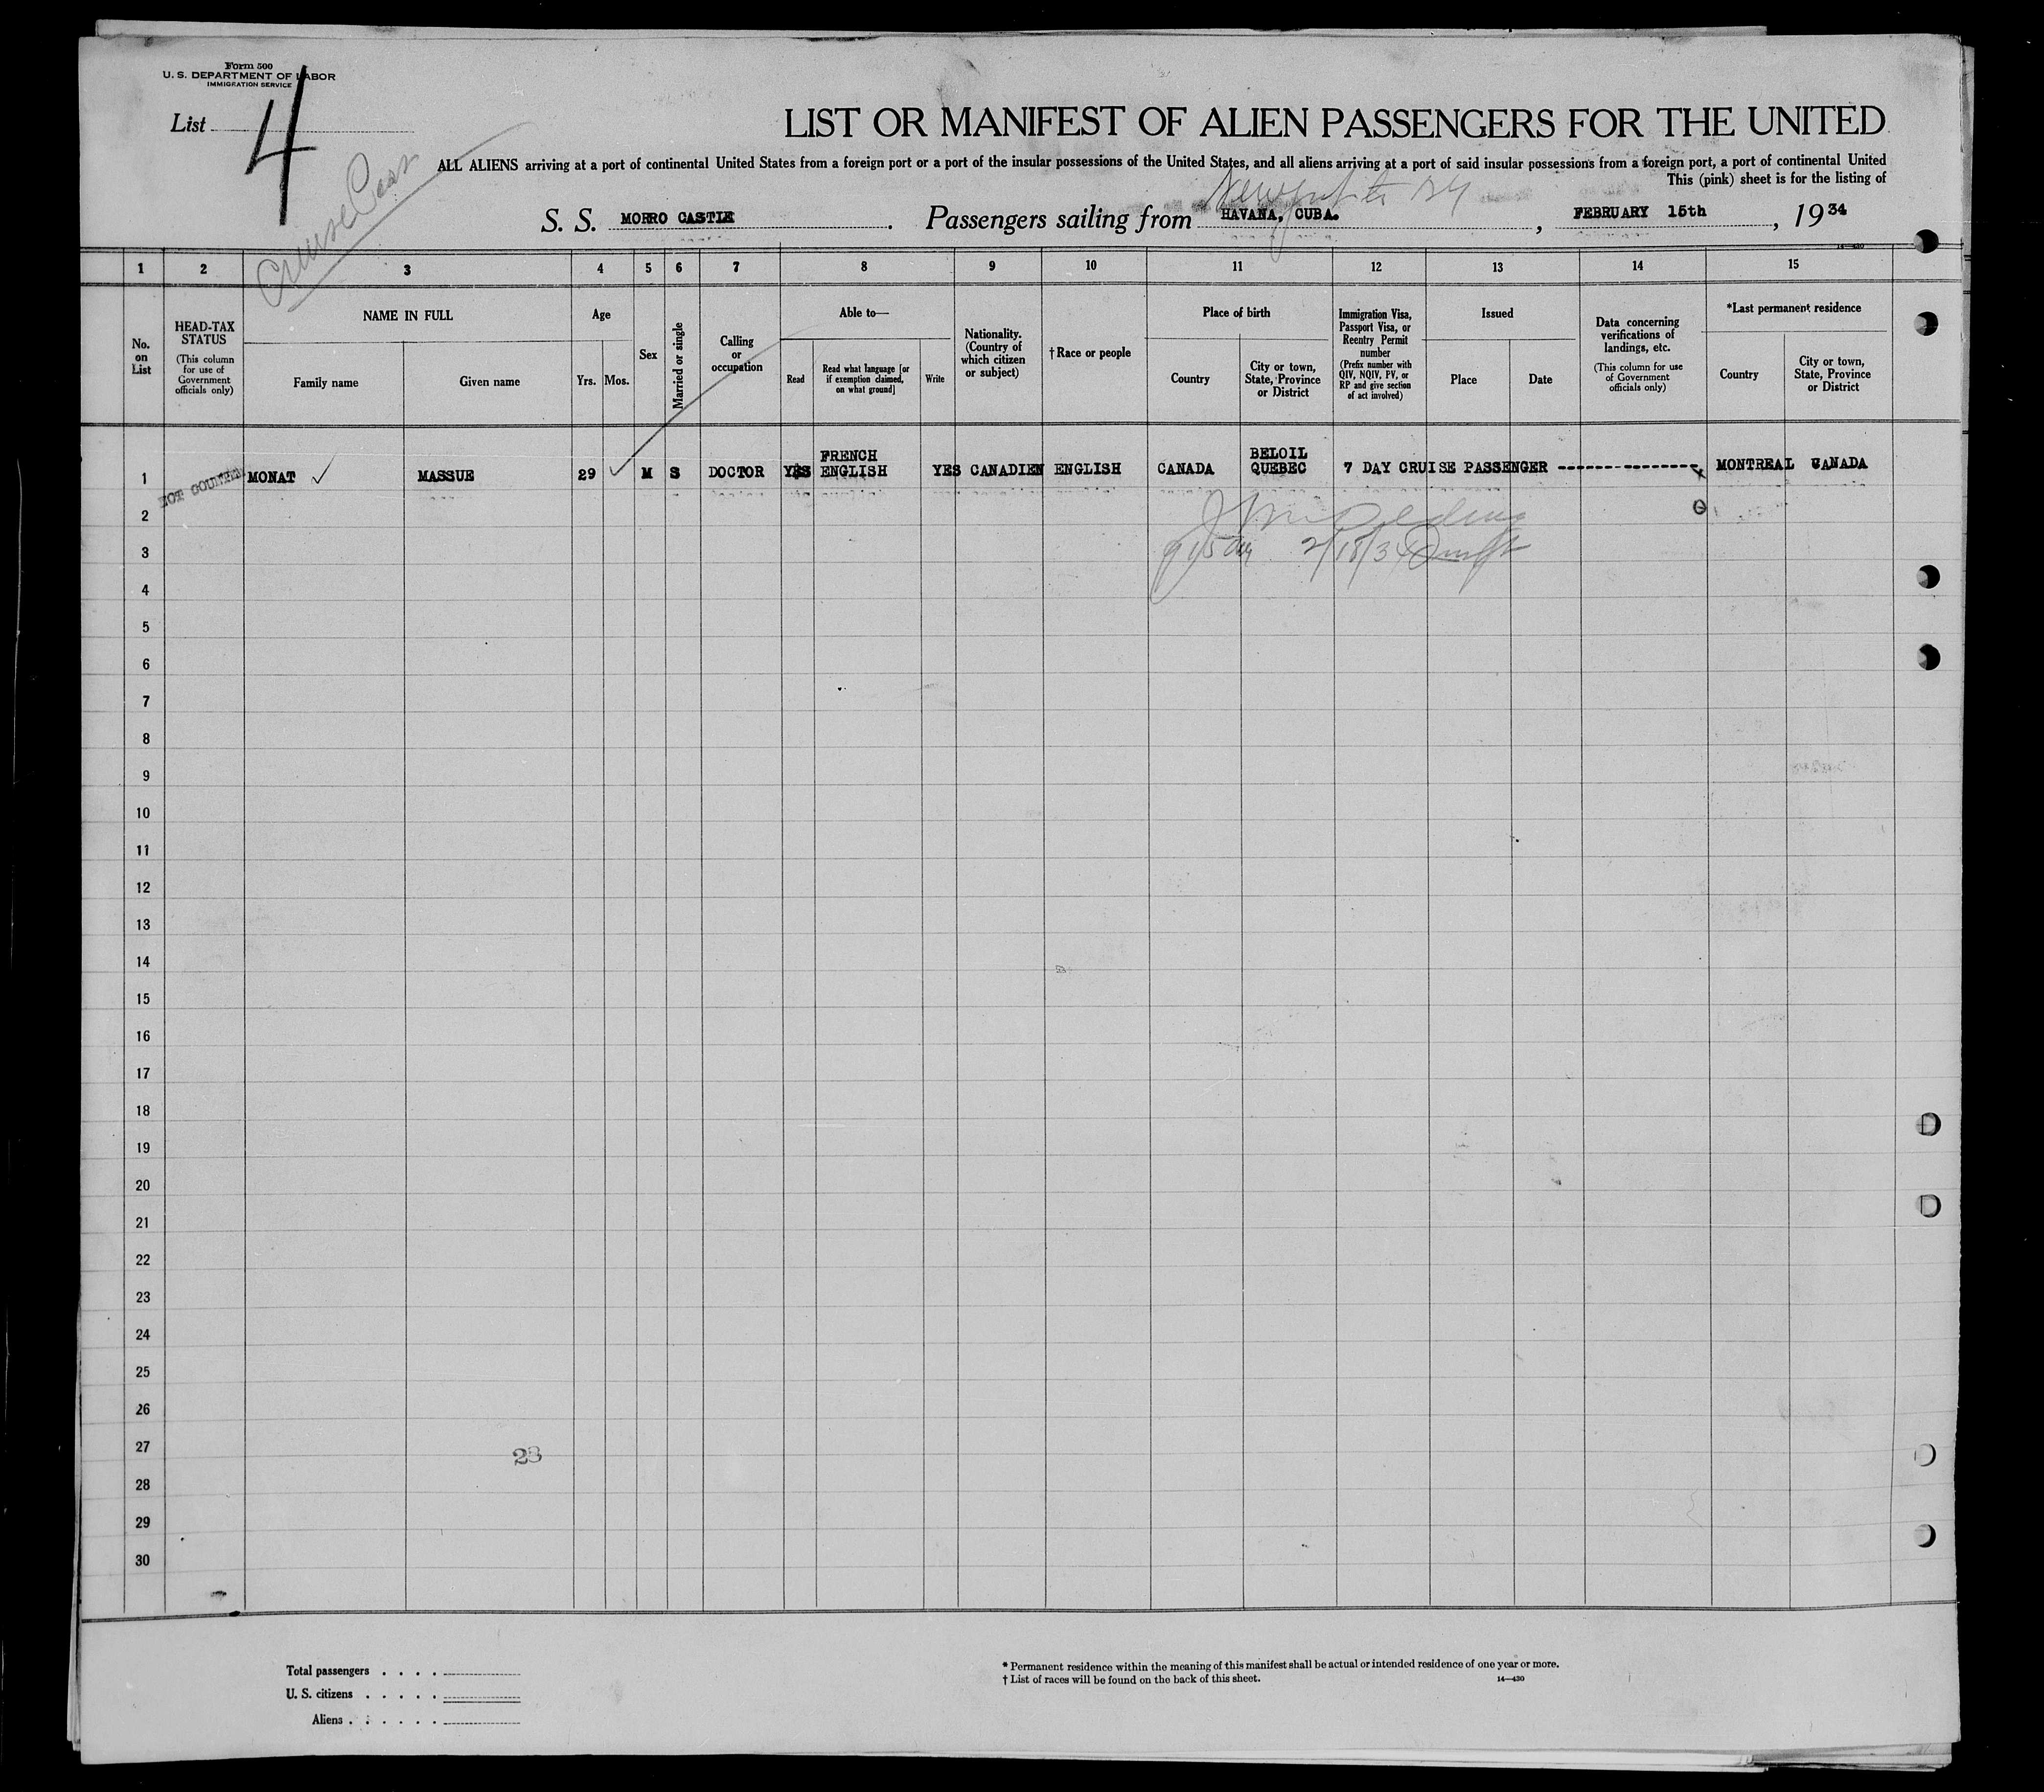 Form 500
U. S. DEPARTMENT OF LABOR
IMMIGRATION SERVICE
List 4
LIST OR MANIFEST OF ALIEN PASSENGERS FOR THE UNITED
ALL ALIENS arriving at a port of continental United States from a foreign port or a port of the insular possessions of the United States, and all aliens arriving at a port of said insular possessions from a foreign port, a port of continental United
This (pink) sheet is for the listing of
Cruise
S. S. MORRO CASTLE. Passengers sailing from HAVANA, CUBA. , FEBRUARY 15th , 19 34
14—430
1 2 3 4 5 6 7 8 9 10 11 12 13 14 15
No. on List
HEAD-TAX STATUS
(This column for use of Government officials only)
NAME IN FULL
Family name
Given name
Age
Yrs. Mos.
Sex
Married or single
Calling or occupation
Able to—
Read
Read what language [or if exemption claimed, on what ground]
Write
Nationality. (Country of which citizen or subject)
†Race or people
Place of birth
Country
City or town, State, Province or District
Immigration Visa, Passport Visa, or Reentry Permit number
(Prefix number with QIV, NQIV, PV, or RP and give section of act involved)
Issued
Place
Date
Data concerning verifications of landings, etc.
(This column for use of Government officials only)
*Last permanent residence
Country
City or town, State, Province or District
1 NOT COUNTED MONAT MASSUE 29 M S DOCTOR YES FRENCH ENGLISH YES CANADIEN ENGLISH CANADA BELOIL QUEBEC 7 DAY CRUISE PASSENGER ---------------- MONTREAL CANADA
2
3 2/18/34
4
5
6
7
8
9
10
11
12
13
14
15
16
17
18
19
20
21
22
23
24
25
26
27
23
28
29
30
Total passengers . . . .
U. S. citizens . . . . .
Aliens . . . . . .
* Permanent residence within the meaning of this manifest shall be actual or intended residence of one year or more.
† List of races will be found on the back of this sheet.
14—430